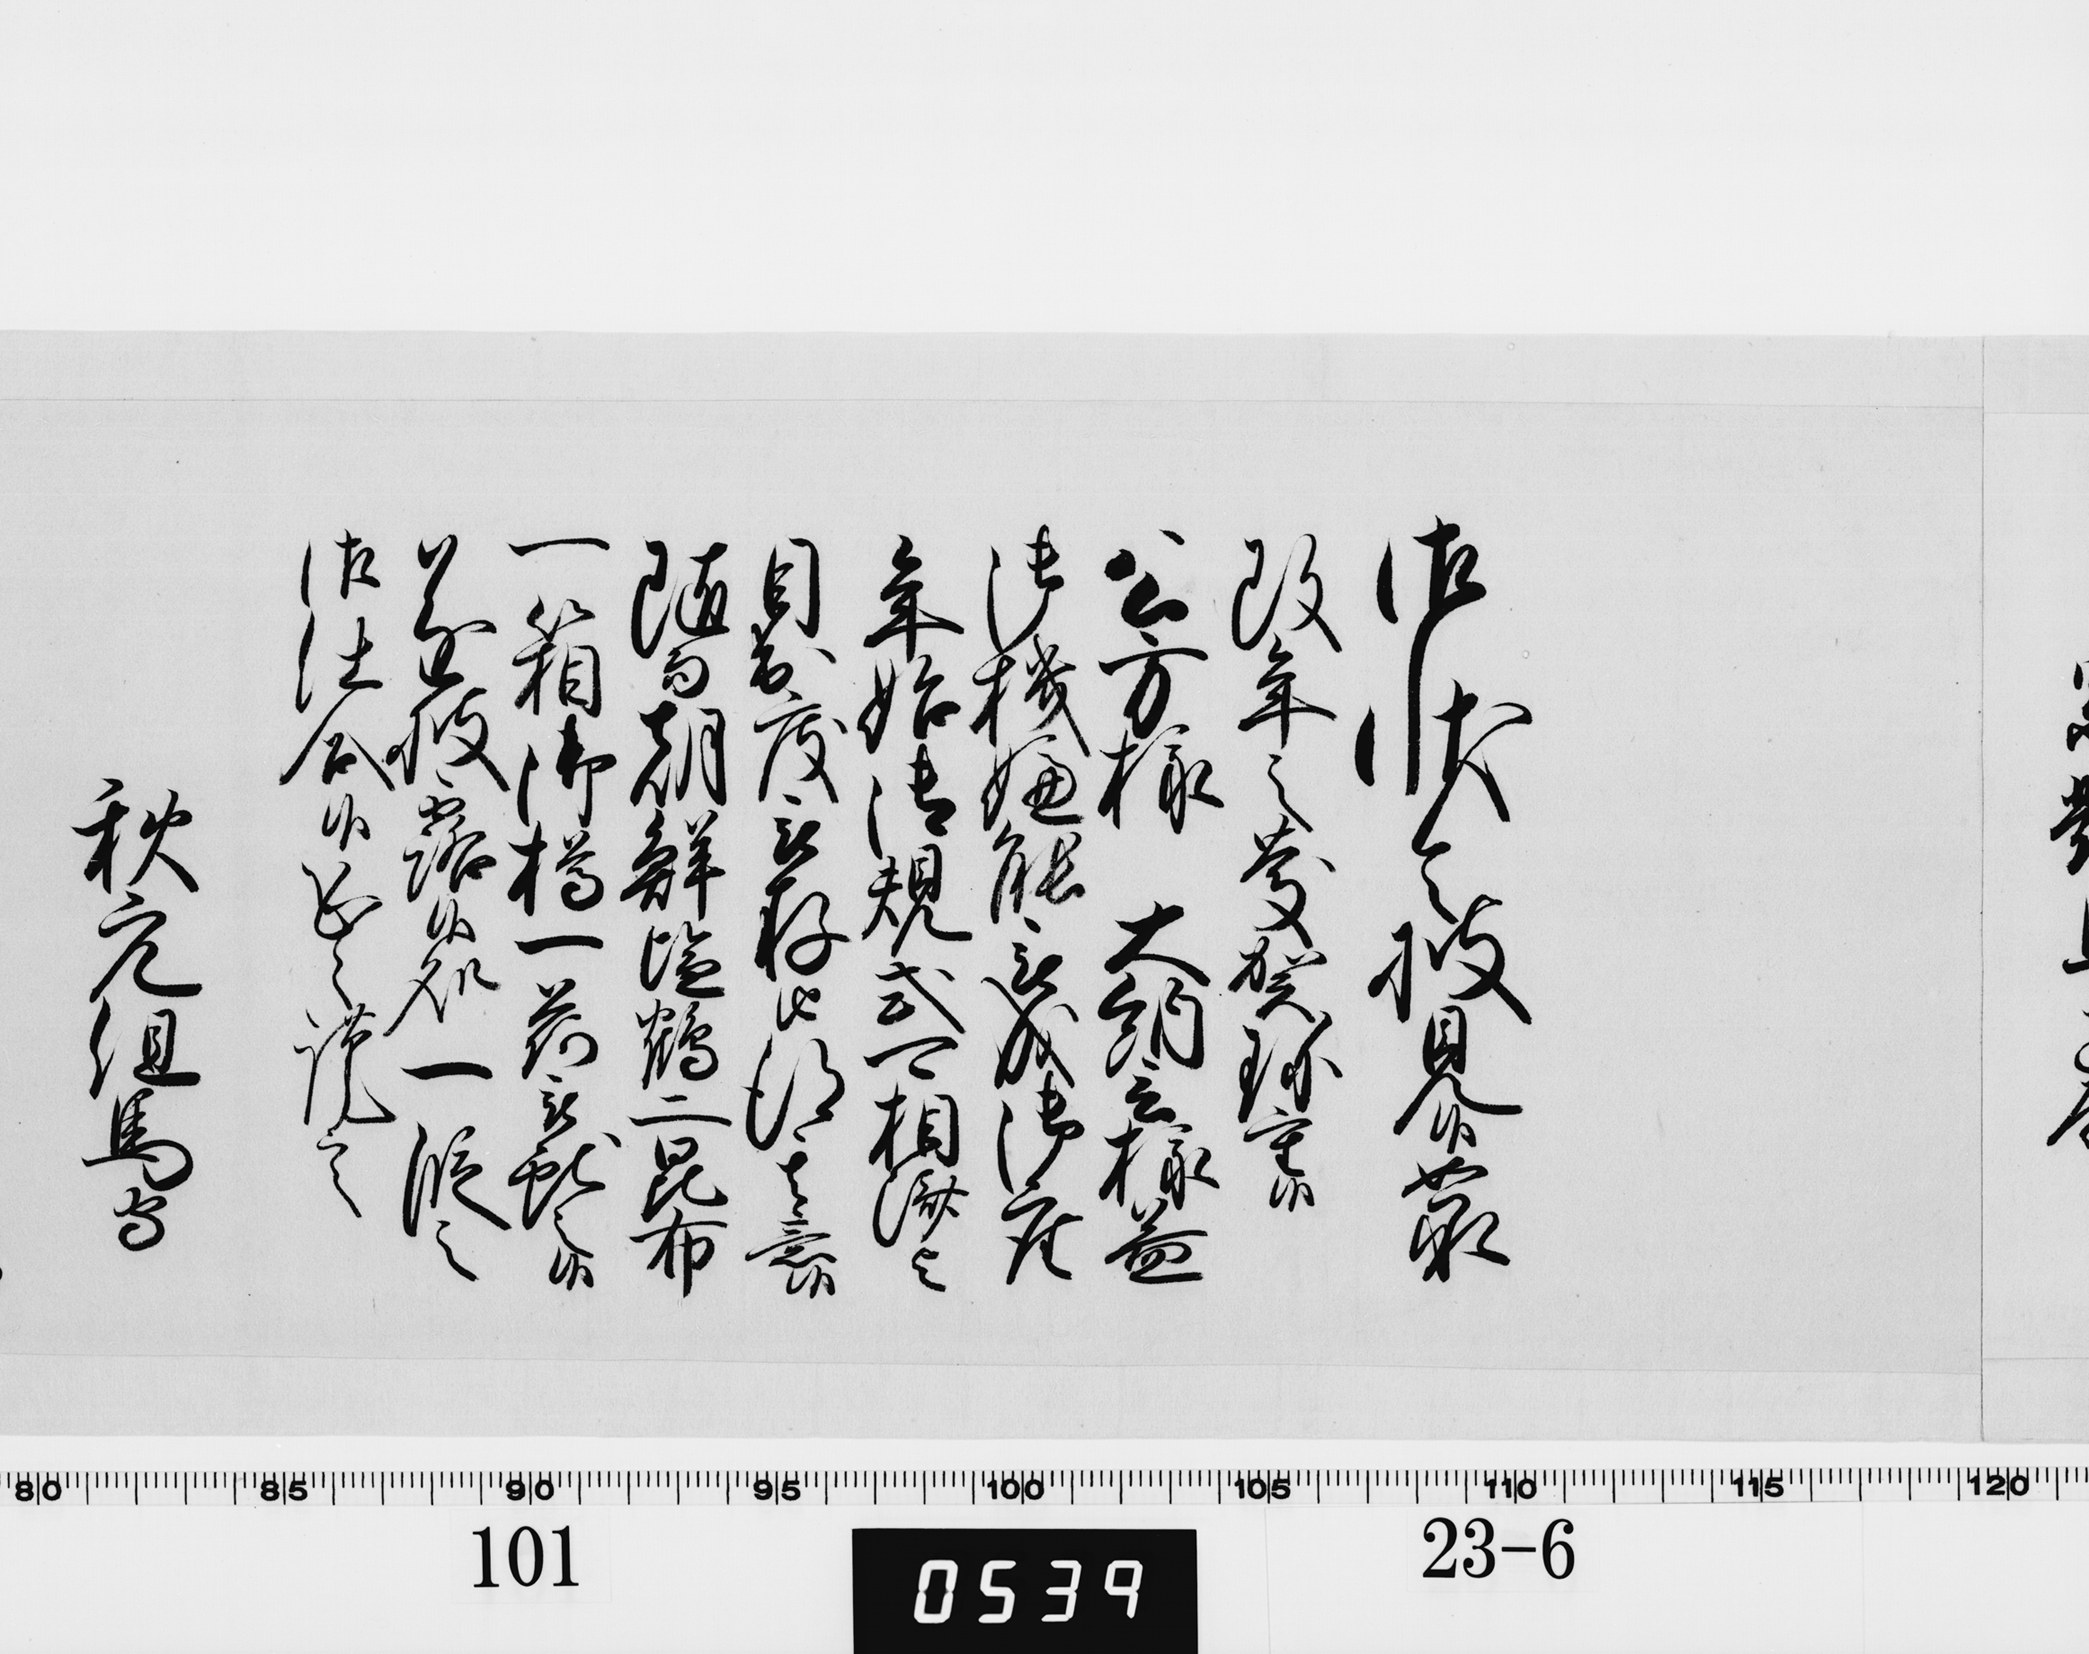 御状令披見候如承
改年之慶賀珍重候
公方様 大納言様益
御機嫌能被成御座
年始御規式可相済与
目出度被存由得其意候
随而朝鮮塩鶴二昆布
一箱御樽一荷被献之候
遂披露候処一段之
御仕合候恐々謹言
秋元但馬守
80 85 90 95 100 105 110 115 120
101
0539
23-6